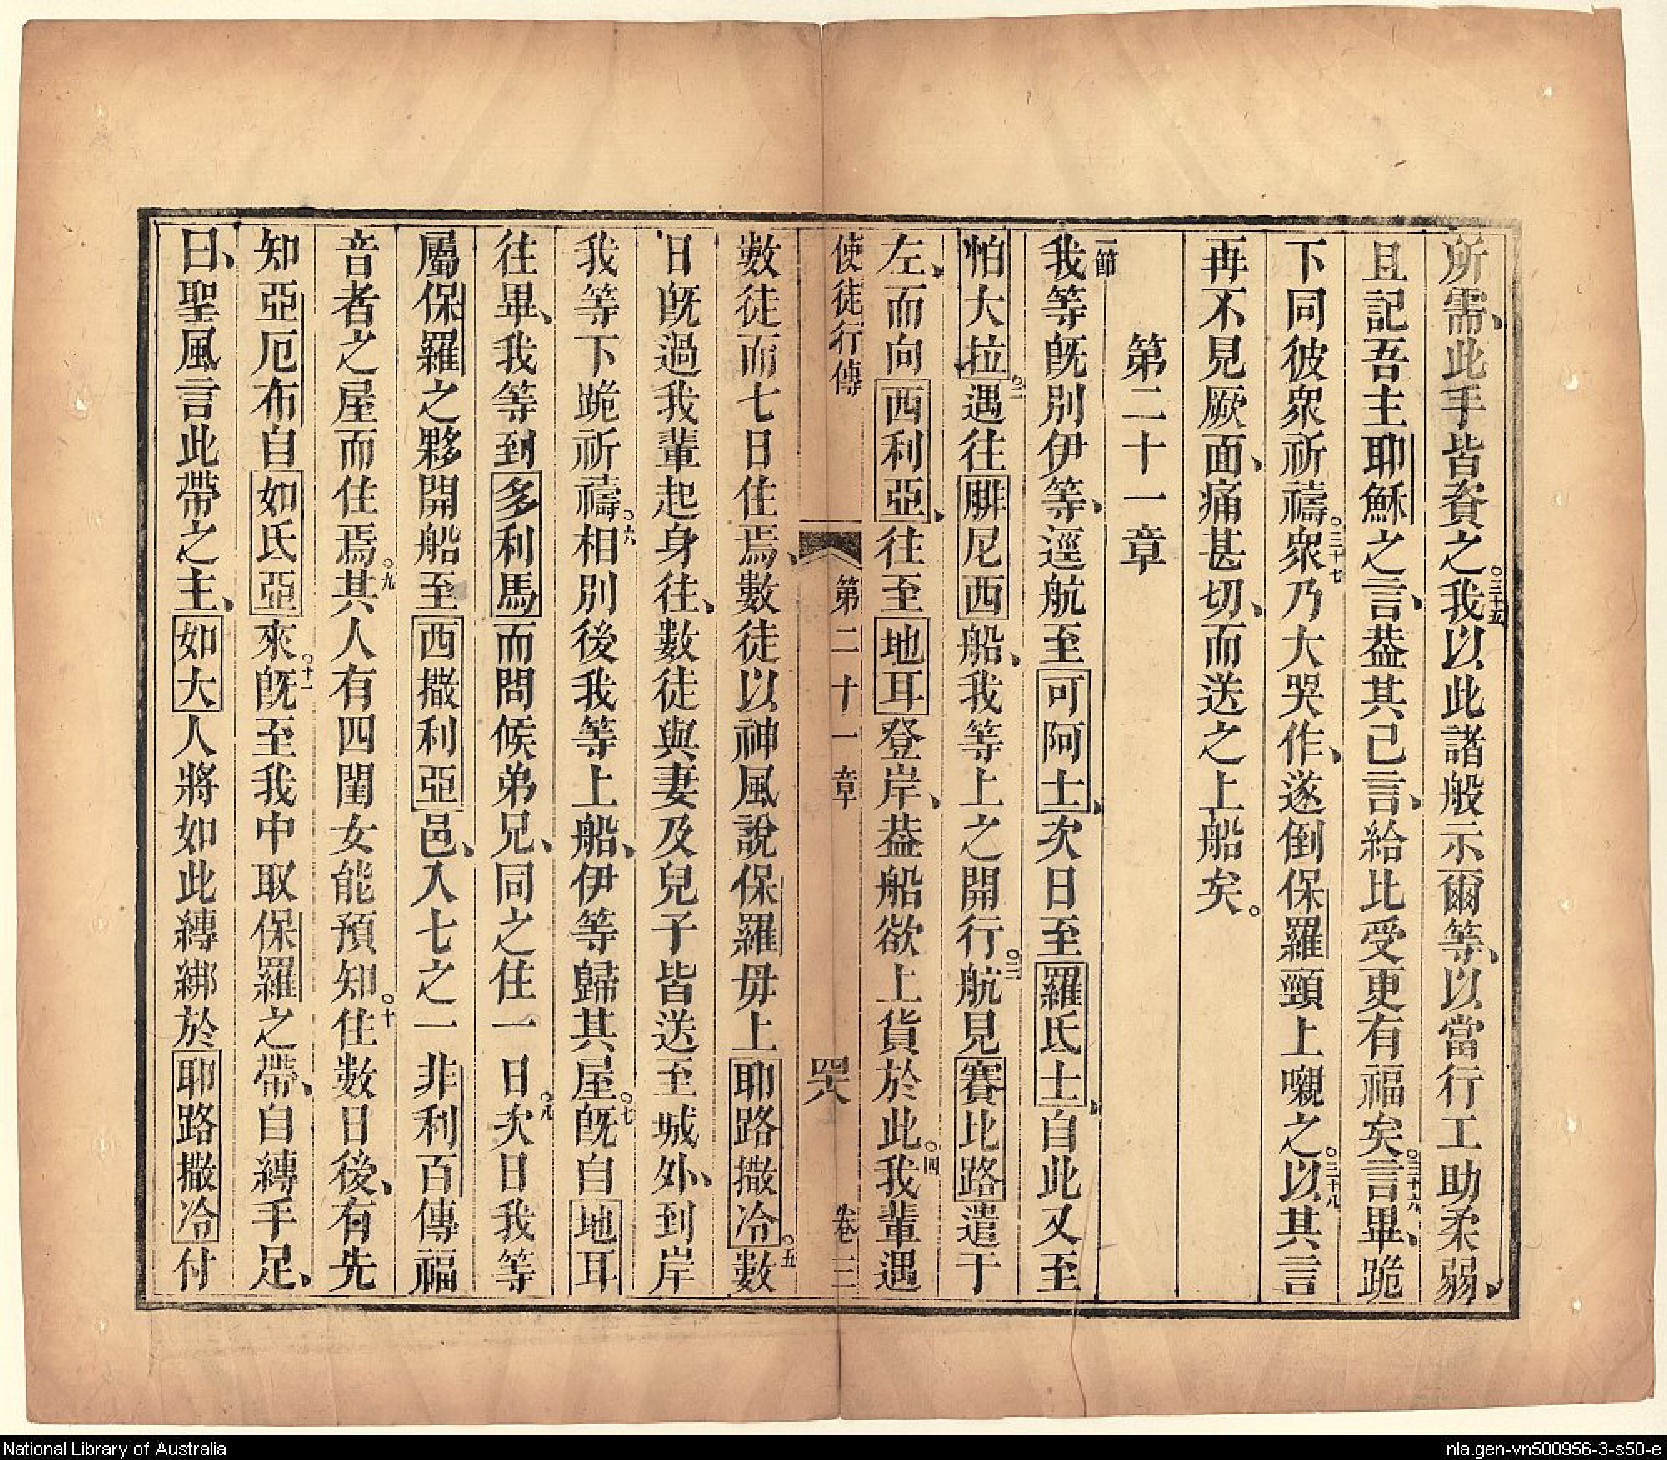 所需、此手皆資之。三十五我以此諸般示爾等、以當行工助柔弱、
且記吾主耶穌之言、葢其已言、給比受更有福矣。三十六言畢、跪
下同彼衆祈禱。三十七衆乃大哭作、遂倒保羅頸上嚫之。三十八以其言
再不見厥面、痛甚切、而送之上船矣。
第二十一章
一節
我等旣別伊等、逕航至可阿士、次日至羅氏士、自此又至
帕大拉。二遇往腓尼西船、我等上之開行。三航見賽比路遣于
左、而向西利亞、往至地耳登岸、葢船欲上貨於此。四我輩遇
使徒行傳 第二十一章 罘 卷三
數徒而七日住焉、數徒以神風說保羅毋上耶路撒冷。五數
日旣過我輩起身往、數徒與妻及兒子皆送至城外、到岸
我等下跪祈禱。六相別後我等上船、伊等歸其屋。七旣自地耳
往畢、我等到多利馬而問候弟兄、同之住一日。八次日我等
屬保羅之夥開船至西撒利亞邑、入七之一非利百傳福
音者之屋而住焉。九其人有四閨女能預知。十住數日後、有先
知亞厄布自如氐亞來。十一旣至我中取保羅之帶、自縛手足、
曰、聖風言此帶之主、如大人將如此縛綁於耶路撒冷付
National Library of Australia
nla.gen-vn500956-3-s50-e